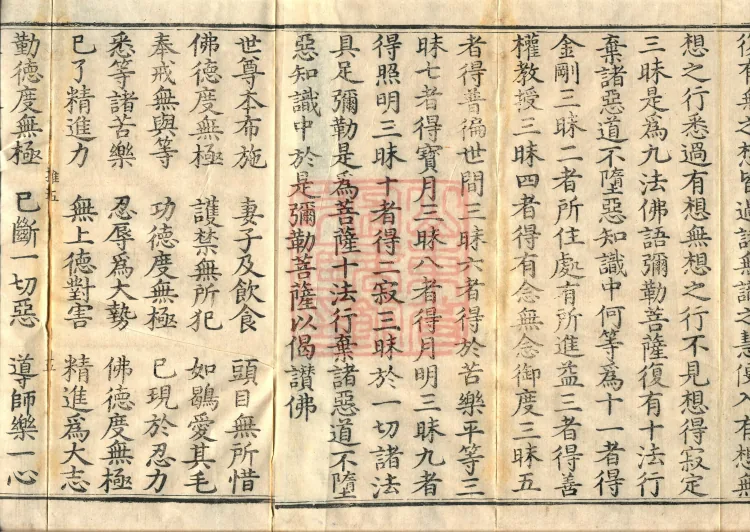 復有無之想皆過諸無識之慧便入有想無
想之行悉過有想無想之行不見想得寂定
三昧是爲九法佛語彌勒菩薩復有十法行
棄諸惡道不墮惡知識中何等爲十一者得
金剛三昧二者所住處有所進益三者得善
權教授三昧四者得有念無念御度三昧五
者得普徧世間三昧六者得於苦樂平等三
昧七者得寶月三昧八者得月明三昧九者
得照明三昧十者得二寂三昧於一切諸法
具足彌勒是爲菩薩十法行棄諸惡道不墮
惡知識中於是彌勒菩薩以偈讃佛
世尊本布施 妻子及飲食 頭目無所惜
佛德度無極 護禁無所犯 如鶡愛其毛
奉戒無與等 功德度無極 已現於忍力
悉等諸苦樂 忍辱爲大勢 佛德度無極
已了精進力 無上德對害 精進爲大志
勤德度無極 已斷一切惡 導師樂一心